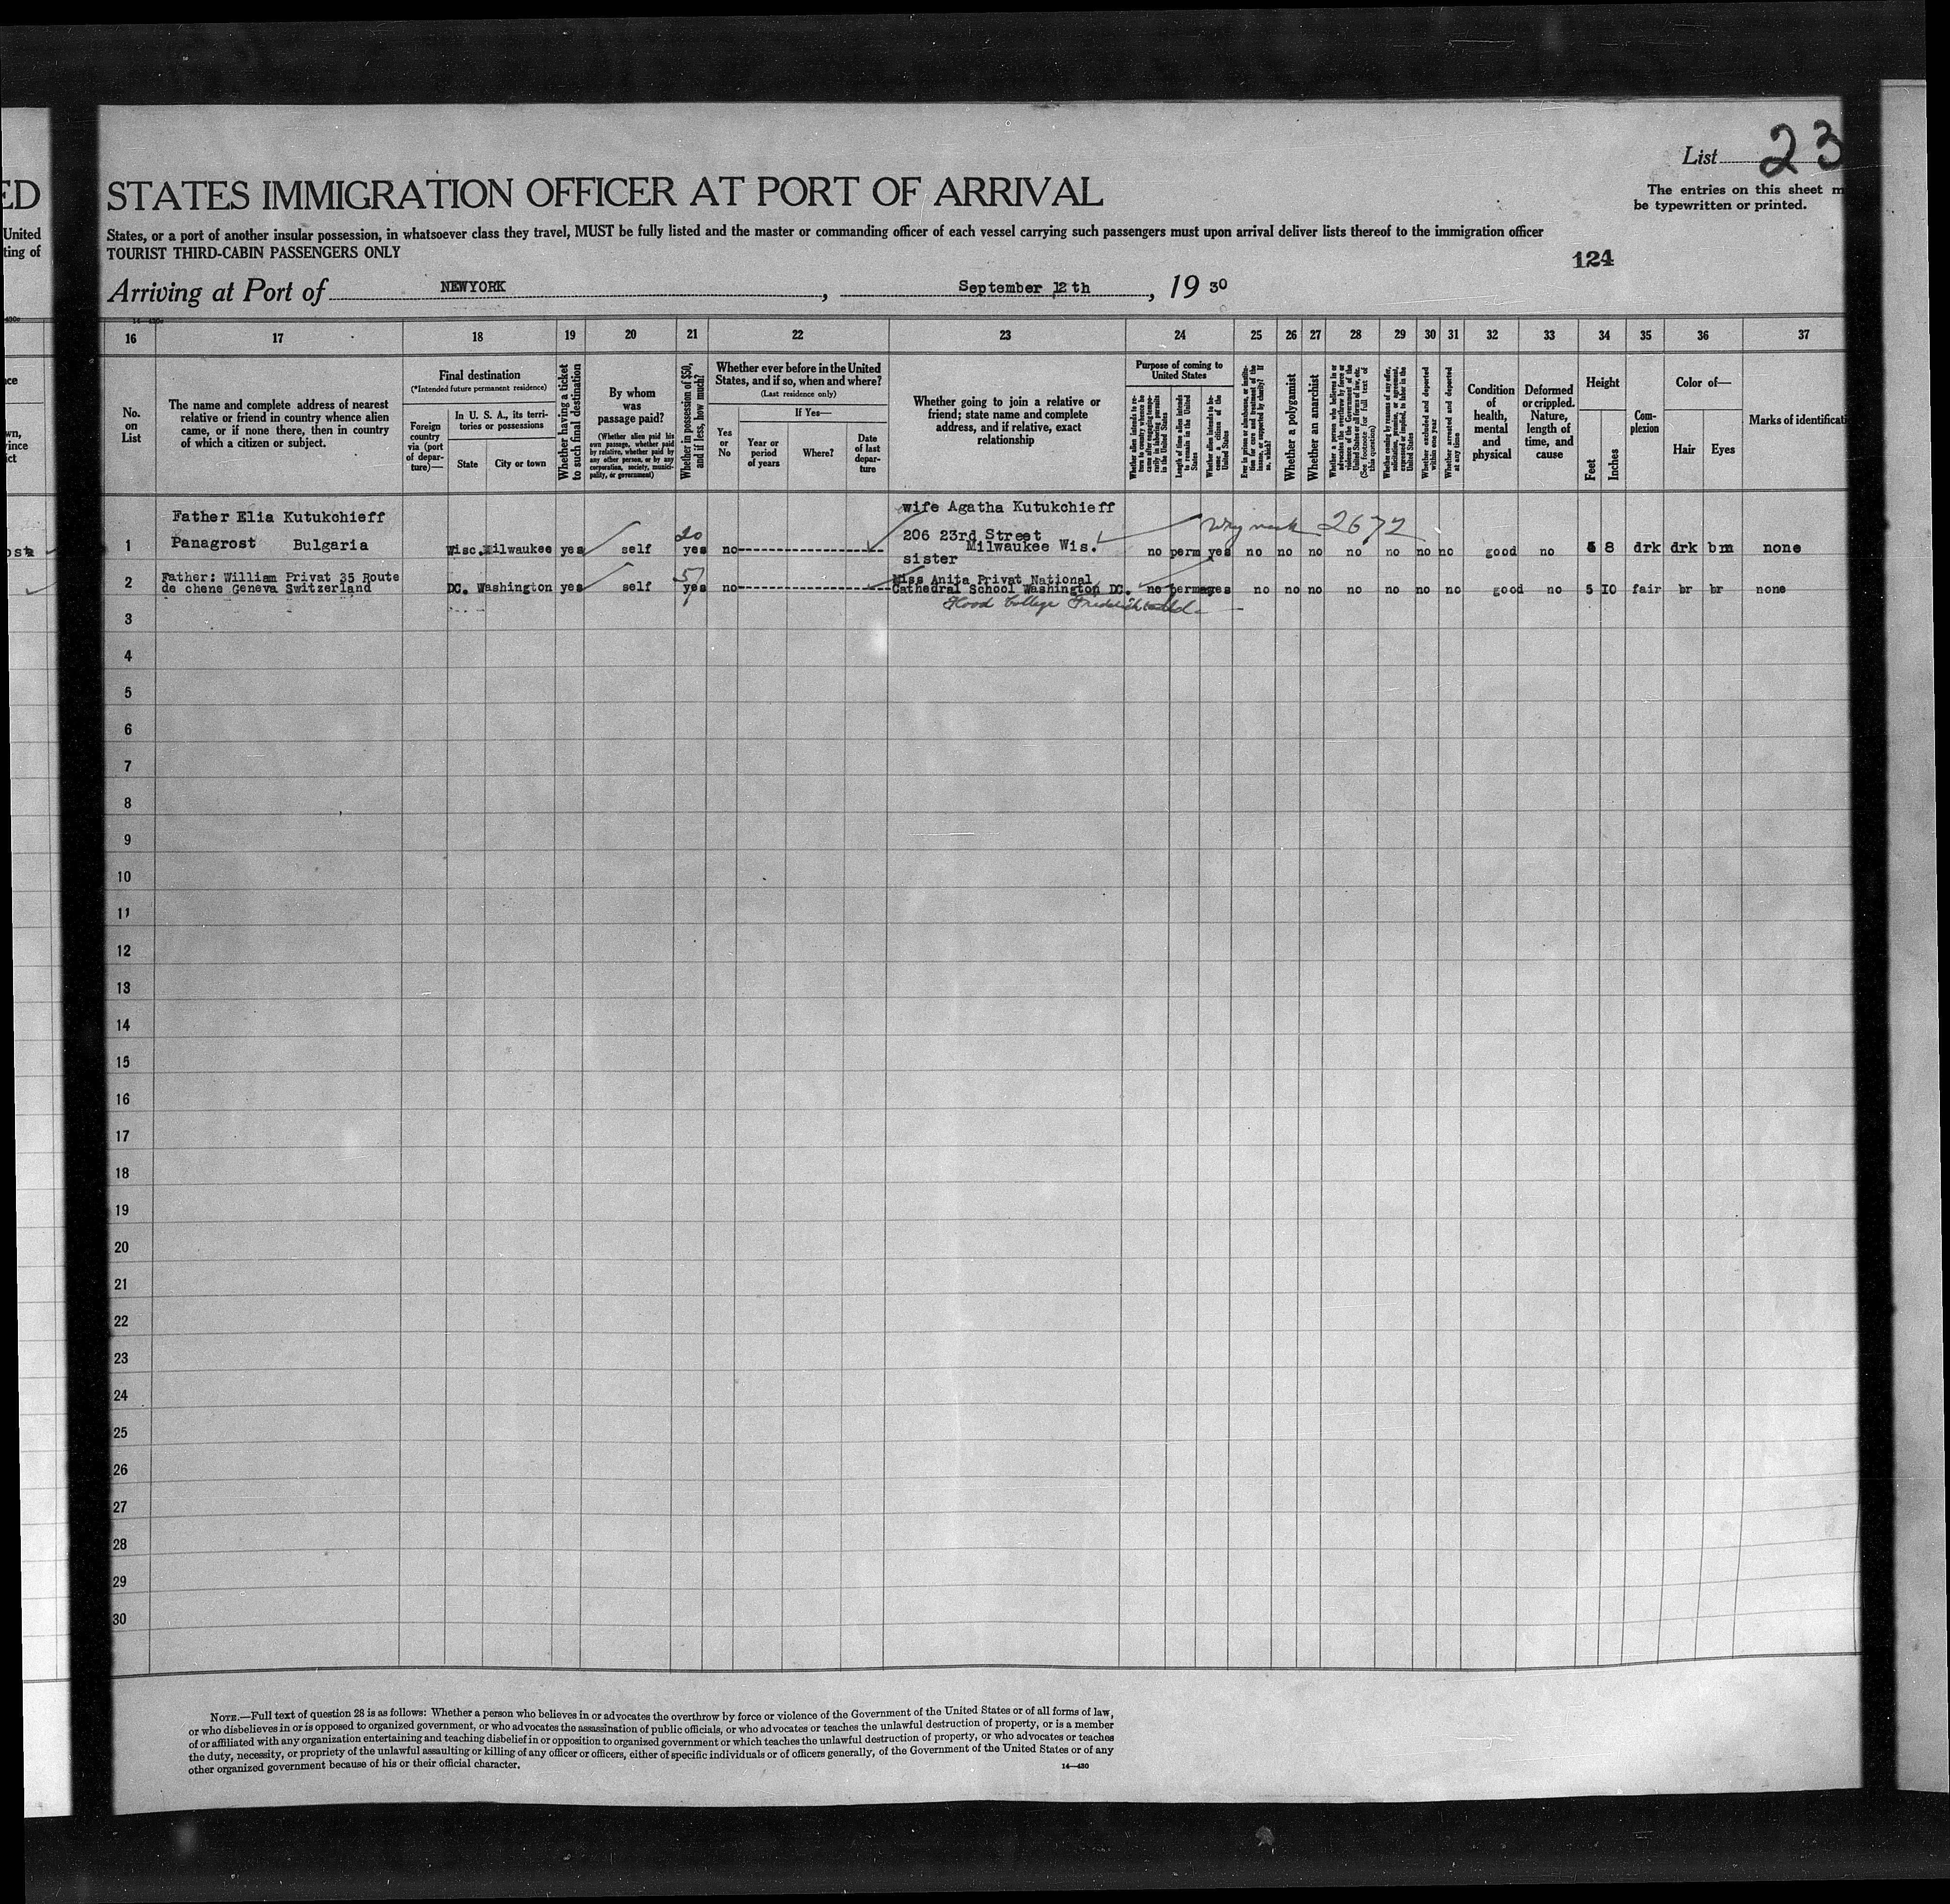 ED
United
ting of
List 23
STATES IMMIGRATION OFFICER AT PORT OF ARRIVAL
The entries on this sheet m
be typewritten or printed.
States, or a port of another insular possession, in whatsoever class they travel, MUST be fully listed and the master or commanding officer of each vessel carrying such passengers must upon arrival deliver lists thereof to the immigration officer
TOURIST THIRD-CABIN PASSENGERS ONLY
124
Arriving at Port of NEWYORK, September 12th, 1930
16 17 18 19 20 21 22 23 24 25 26 27 28 29 30 31 32 33 34 35 36 37
No.
on
List
The name and complete address of nearest
relative or friend in country whence alien
came, or if none there, then in country
of which a citizen or subject.
Final destination
(*Intended future permanent residence)
Foreign
country
via (port
of depar-
ture)—
In U. S. A., its terri-
tories or possessions
State
City or town
Whether having a ticket
to such final destination
By whom
was
passage paid?
(Whether alien paid his
own passage, whether paid
by relative, whether paid by
any other person, or by any
corporation, society, munici-
pality, or government)
Whether in possession of $50,
and if less, how much?
Whether ever before in the United
States, and if so, when and where?
(Last residence only)
Yes
or
No
If Yes—
Year or
period
of years
Where?
Date
of last
depar-
ture
Whether going to join a relative or
friend; state name and complete
address, and if relative, exact
relationship
Purpose of coming to
United States
Whether alien intends to re-
turn to country whence he
came after engaging tempo-
rarily in laboring pursuits
in the United States
Length of time alien intends
to remain in the United
States
Whether alien intends to be-
come a citizen of the
United States
Ever in prison or almshouse, or institu-
tion for care and treatment of the
insane, or supported by charity? If
so, which?
Whether a polygamist
Whether an anarchist
Whether a person who believes in or
advocates the overthrow by force or
violence of the Government of the
United States or all forms of law, etc.
(See footnote for full text of
this question)
Whether coming by reason of any offer,
solicitation, promise, or agreement,
expressed or implied, to labor in the
United States
Whether excluded and deported
within one year
Whether arrested and deported
at any time
Condition
of
health,
mental
and
physical
Deformed
or crippled.
Nature,
length of
time, and
cause
Height
Feet
Inches
Com-
plexion
Color of—
Hair
Eyes
Marks of identificati
wife Agatha Kutukchieff
Father Elia Kutukchieff
206 23rd Street
2672
20
1 Panagrost Bulgaria Wisc. Milwaukee yes self yes no Milwaukee Wis. no perm yes no no no no no no no good no 5 8 drk drk brn none
sister
Father: William Privat 35 Route
Miss Anita Privat National
2 de chene Geneva Switzerland DC. Washington yes self yes no Cathedral School Washington DC. no perm yes no no no no no no no good no 5 10 fair br br none
Hood College
3
4
5
6
7
8
9
10
11
12
13
14
15
16
17
18
19
20
21
22
23
24
25
26
27
28
29
30
NOTE.—Full text of question 28 is as follows: Whether a person who believes in or advocates the overthrow by force or violence of the Government of the United States or of all forms of law,
or who disbelieves in or is opposed to organized government, or who advocates the assassination of public officials, or who advocates or teaches the unlawful destruction of property, or is a member
of or affiliated with any organization entertaining and teaching disbelief in or opposition to organized government or which teaches the unlawful destruction of property, or who advocates or teaches
the duty, necessity, or propriety of the unlawful assaulting or killing of any officer or officers, either of specific individuals or of officers generally, of the Government of the United States or of any
other organized government because of his or their official character.
14—430